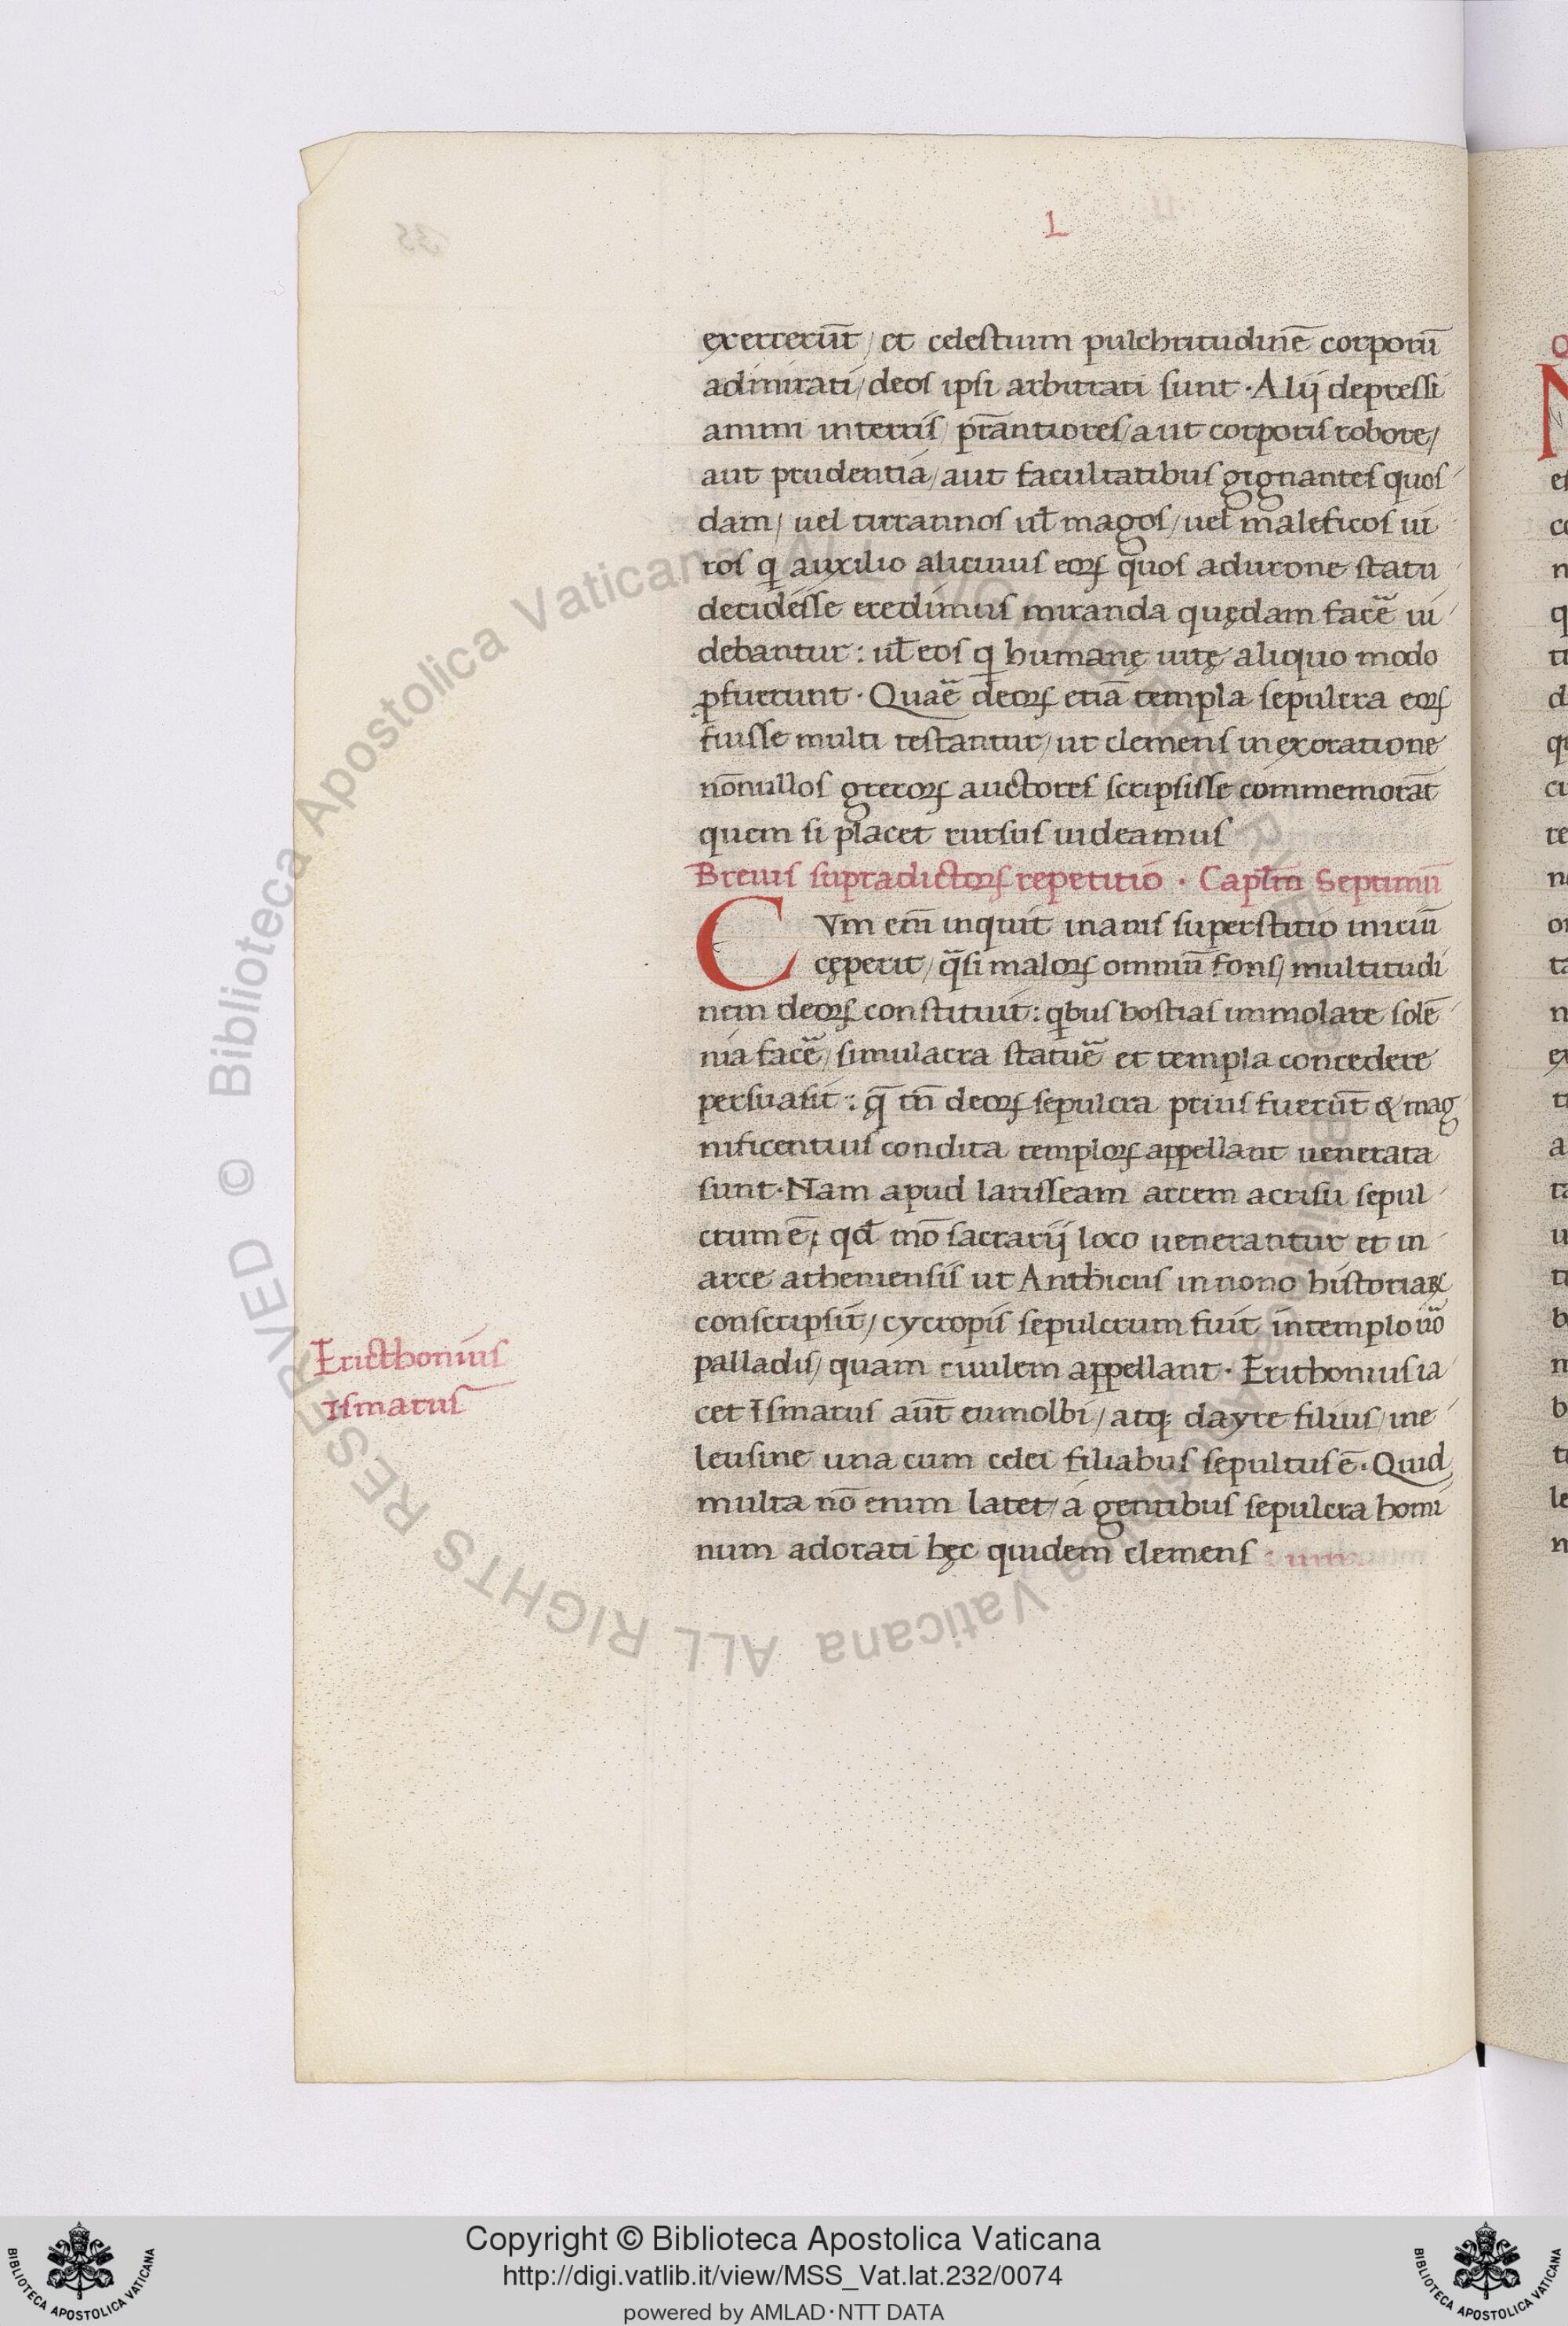 L
exercerūt / et celestium pulchritudinē corporū
admirati / deos ipsi arbitrati sunt · Alij depressi
animi in terris / prāntiores / aut corporis robore /
aut prudentia / aut facultatibus gignantes quos
dam / uel tirannos ul̄ magos / uel maleficos ui
ros q auxilio alicuius eoꝝ quos adiurone statu
decidesse credimus miranda quędam facē ui
debantur : ul̄ eos q humanę uitę aliquo modo
ꝓfuerunt · Quaē deoꝝ etiā templa sepulcra eoꝝ
fuisse multi testantur / ut clemens in exoratione
nōnullos grecoꝝ auctores scripsisse commemorāt
quem si placet rursus uideamus
Breuis supradictoꝝ repetitio · Capl̄m Septimū
CVm em̄ inquit inanis superstitio iniciū
cęperit / q̄si maloꝝ omniū fons / multitudi
nem deoꝝ constituit : qbus hostias immolare solē
nia facē / simulacra statuē et templa concedere
persuasit : q̄ tn̄ deoꝝ sepulcra prius fuerūt & mag
nificentius condita temploꝝ appellant uenerata
sunt · Nam apud latisseam arcem acrisii sepul
crum ē ; qd̄ mō sacrarij loco uenerantur et in
arce atheniensis ut Anthicus in nono historiaꝝ
conscripsit / cycropis sepulcrum fuit in templo uo᷑
palladis / quam ciuilem appellant · Erithonius ia
cet Ismarus aūt eumolbi / atq; dayre filius / in e
leusine una cum celei filiabus sepultus ē · Quid
multa nō enim latet / a gentibus sepulcra homi
num adorati hęc quidem clemens
Ericthonius
Ismarus
© Biblioteca Apostolica Vaticana ALL RIGHTS RESERVED
© Biblioteca Apostolica Vaticana ALL RIGHTS RESERVED
Copyright © Biblioteca Apostolica Vaticana
http://digi.vatlib.it/view/MSS_Vat.lat.232/0074
powered by AMLAD·NTT DATA
BIBLIOTECA APOSTOLICA VATICANA
BIBLIOTECA APOSTOLICA VATICANA